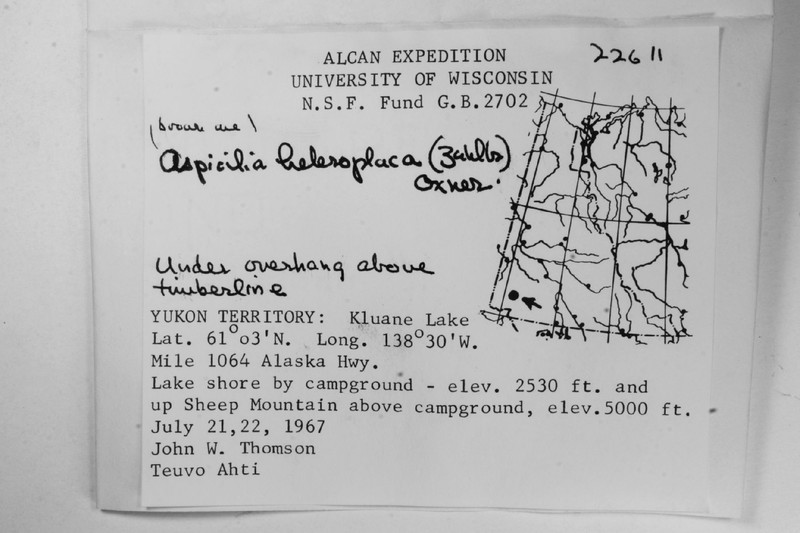 ALCAN EXPEDITION
22611
UNIVERSITY OF WISCONSIN
N.S.F. Fund G.B.2702
Aspicilia heteroplaca (Zahlbr)
Oxner.
Under overhang above
timberline
YUKON TERRITORY: Kluane Lake
Lat. 61°o3'N. Long. 138°30'W.
Mile 1064 Alaska Hwy.
Lake shore by campground - elev. 2530 ft. and
up Sheep Mountain above campground, elev.5000 ft.
July 21,22, 1967
John W. Thomson
Teuvo Ahti